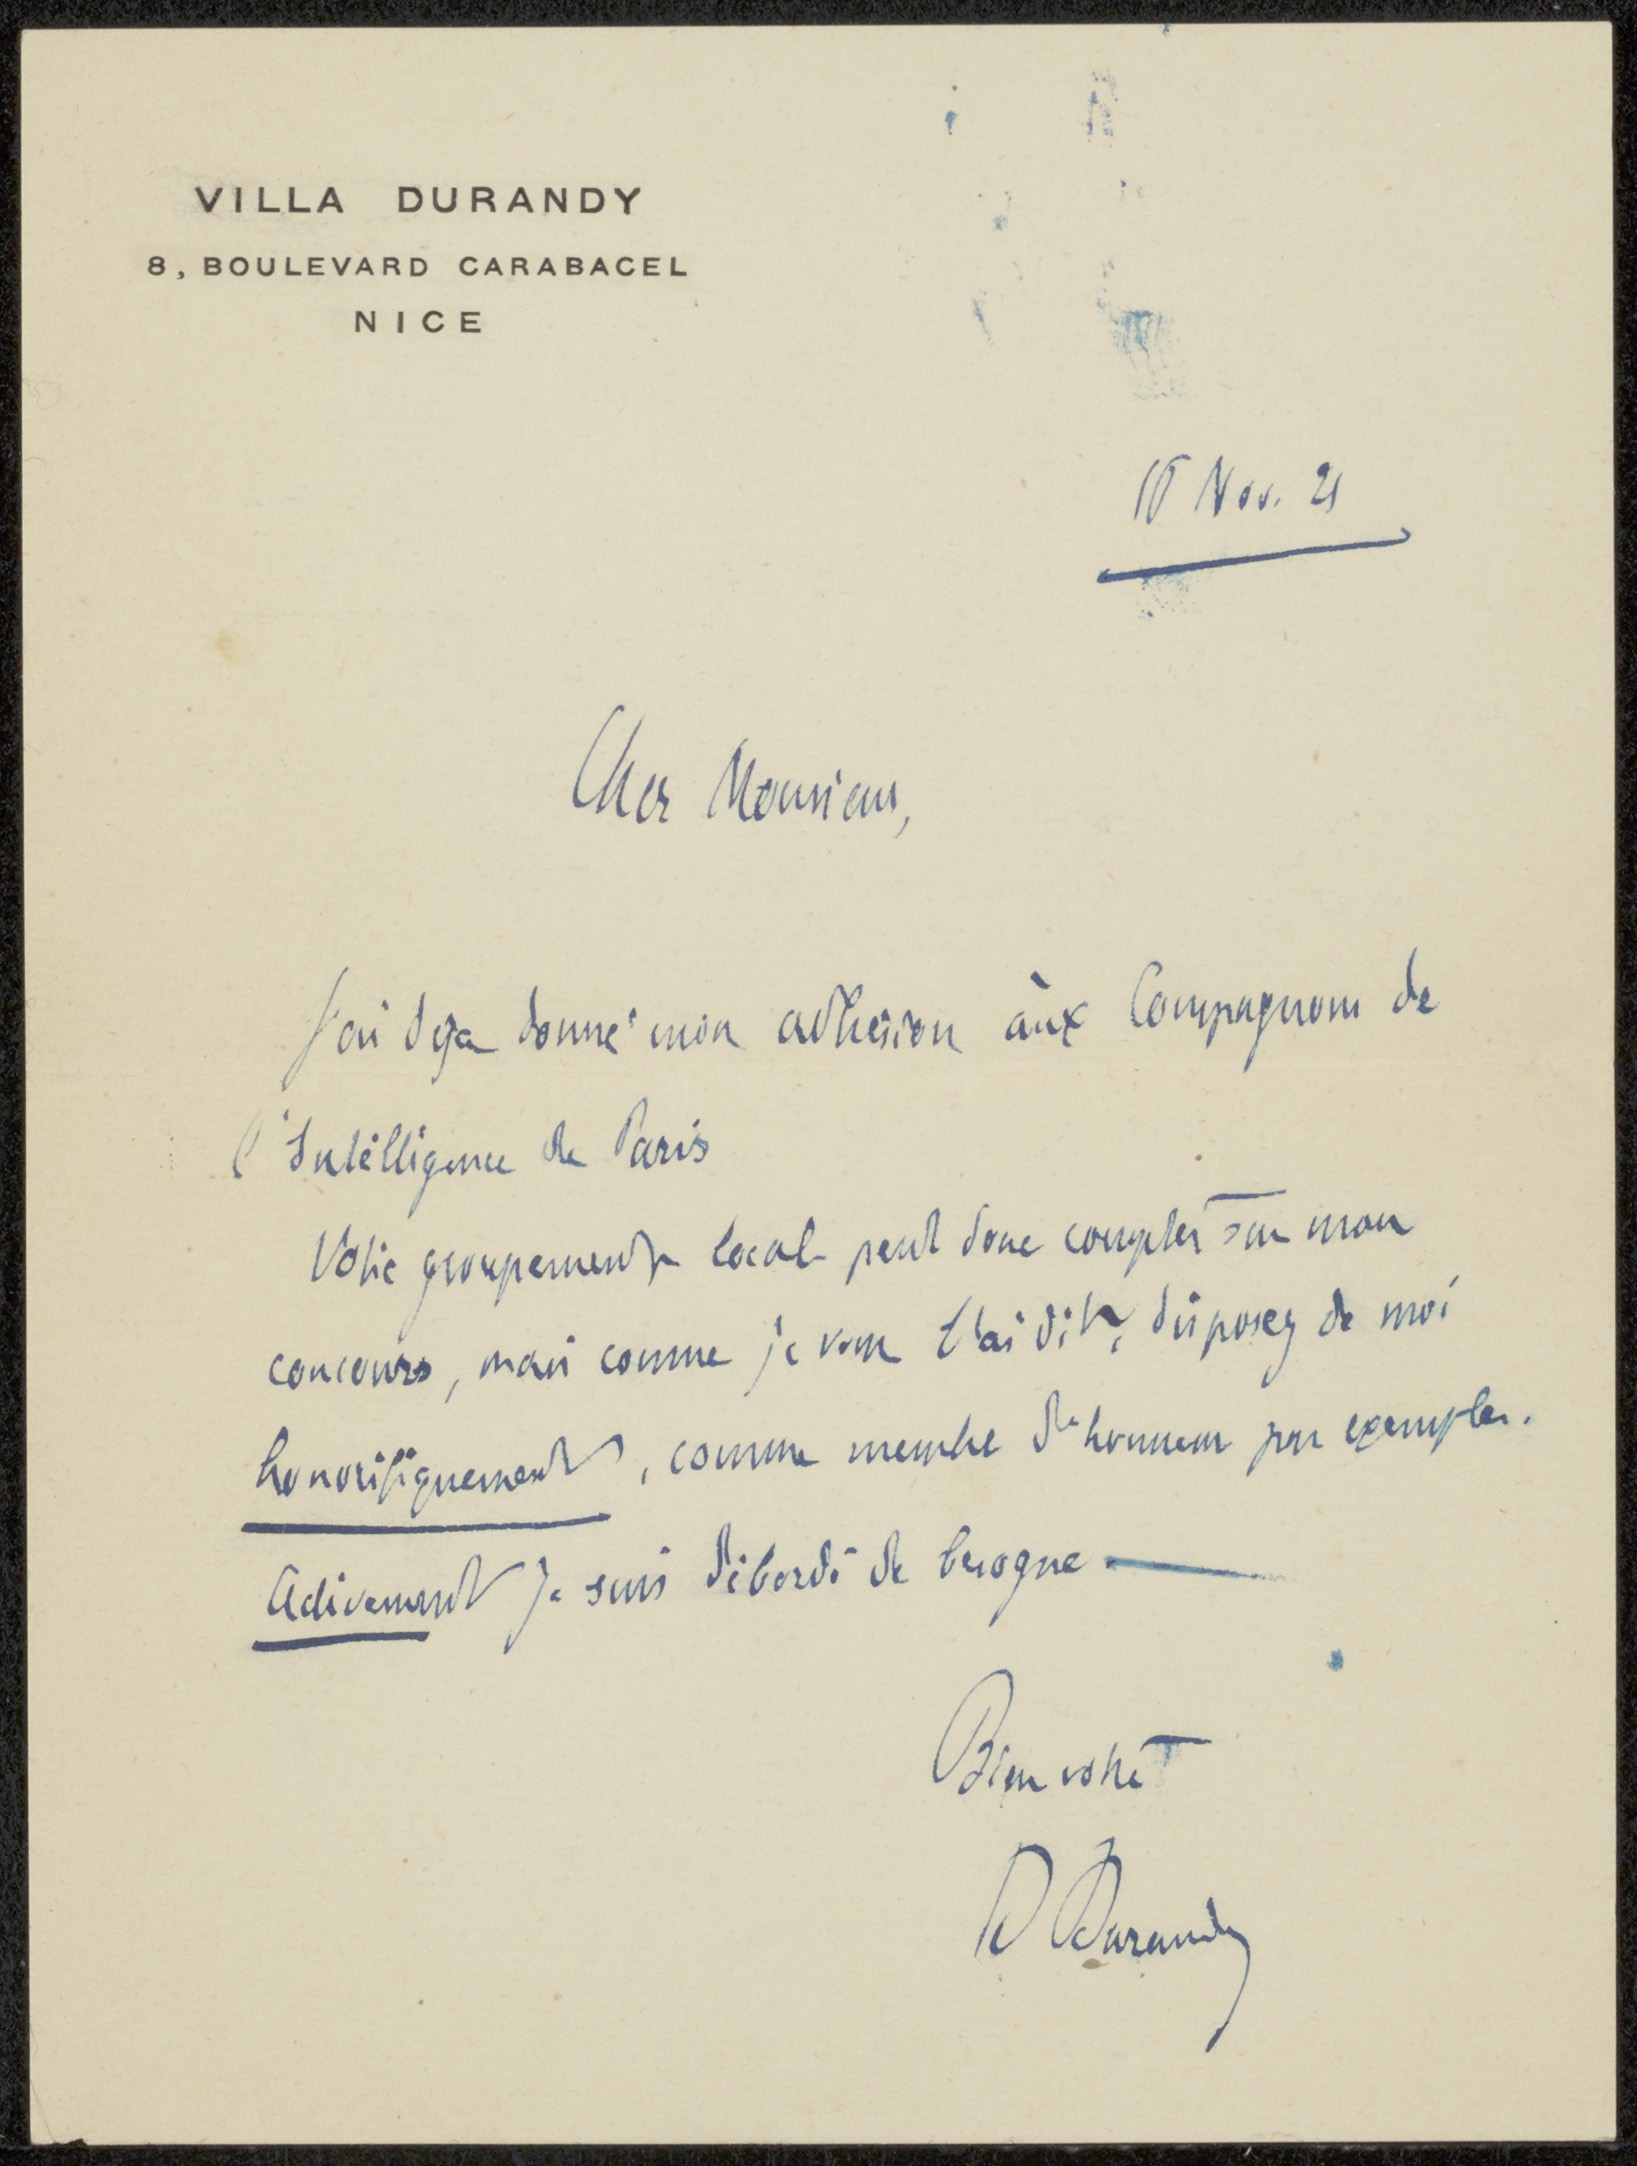 VILLA DURANDY
8, BOULEVARD CARABACEL
NICE
Nov. 21
Cher Monsieur,
J'ai déja donné mon adhésion aux Compagnons de
l'Intelligence de Paris
Votre groupement local peut donc compter sur mon
concours, mais comme je vous l'ai dit, disposez de moi
honorifiquement, comme membre d'honneur par exemple.
Activement je suis débordé de besogne —
Bien votre
Durandy